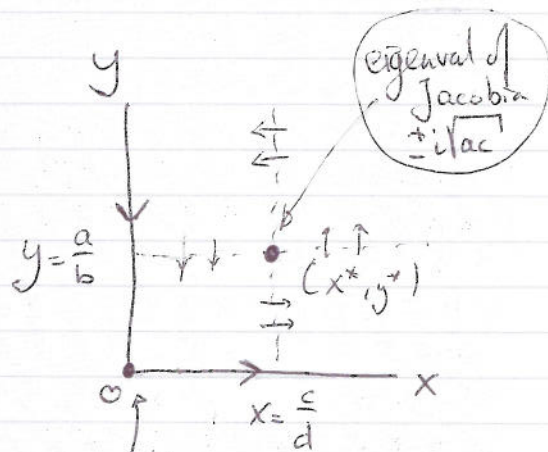 y
eigenval of
Jacobia
± i√ac
y = a/b
(x*, y*)
0
x
x = c/d